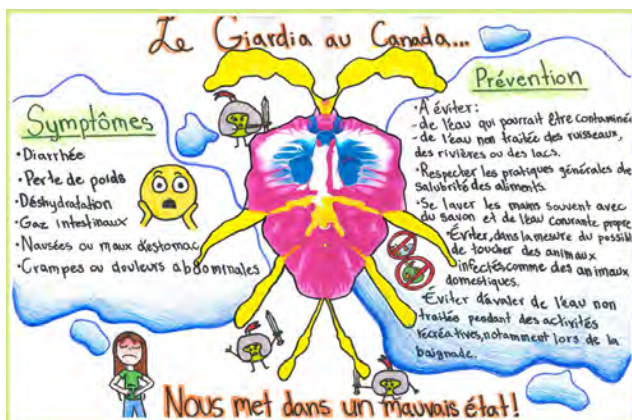 Le Giardia au Canada...
Symptômes
•Diarrhée
•Perte de poids
•Déshydratation
•Gaz intestinaux
•Nausées ou maux d'estomac
•Crampes ou douleurs abdominales
Prévention
•À éviter:
-de l'eau qui pourrait être contaminée
-de l'eau non traitée des ruisseaux,
des rivières ou des lacs.
•Respecter les pratiques générales de
salubrité des aliments.
•Se laver les mains souvent avec
du savon et de l'eau courante propre
•Éviter, dans la mesure du possible
de toucher des animaux
infectés comme des animaux
domestiques.
•Éviter d'avaler de l'eau non
traitée pendant des activités
récréatives, notamment lors de la
baignade.
Nous met dans un mauvais état!